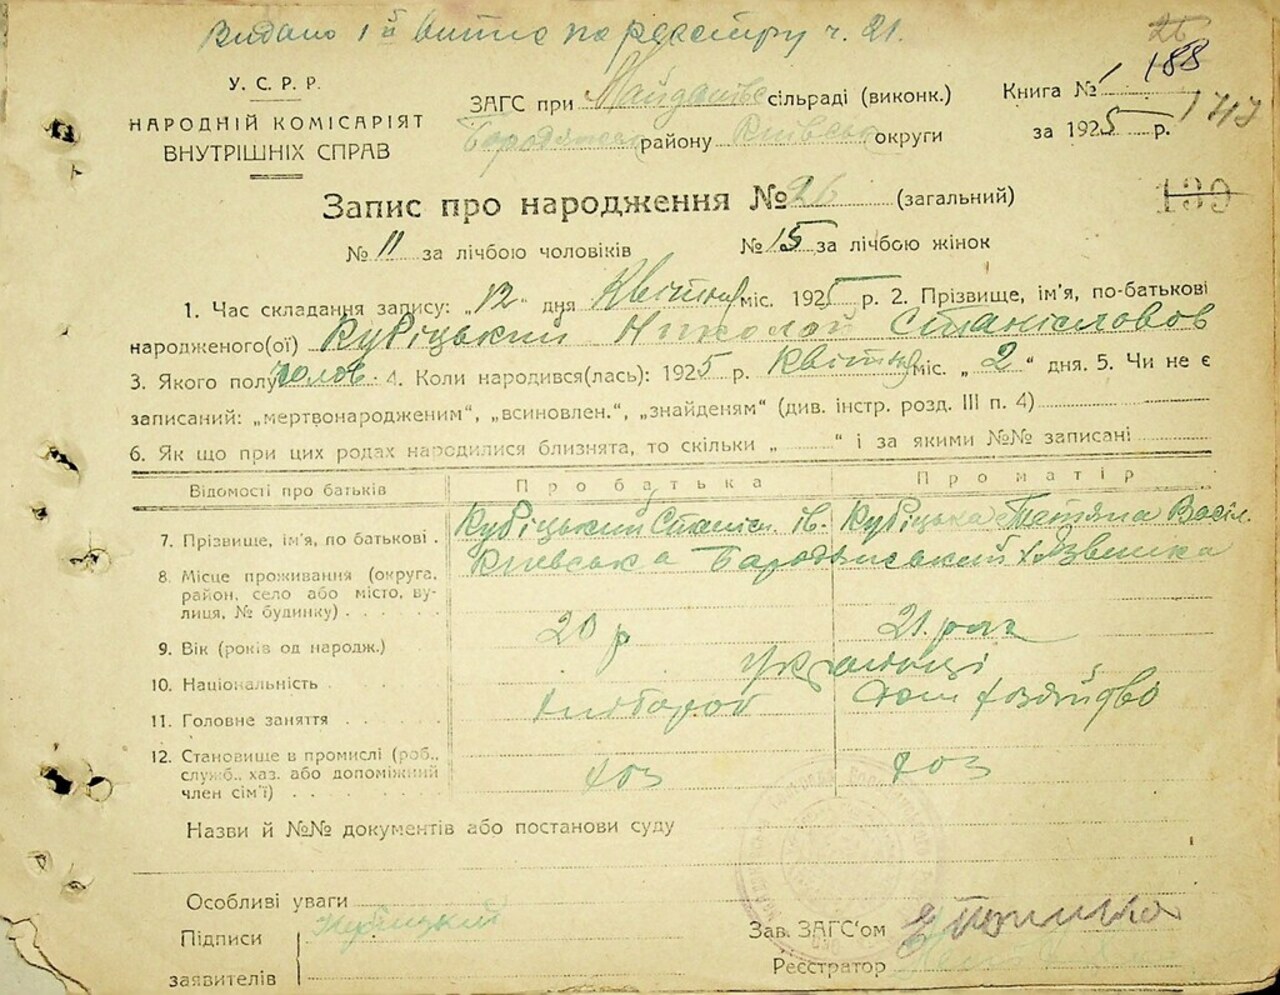 Видано 1й витяг по реєстру ч. 21.
26
188
У. С. Р. Р.
НАРОДНІЙ КОМІСАРІЯТ
ВНУТРІШНІХ СПРАВ
ЗАГС при Майданівс сільраді (виконк.)
Бородянськ району Київськ округи
Книга № 1
за 1925 р.
147
139
Запис про народження № 26 (загальний)
№ 11 за лічбою чоловіків № 15 за лічбою жінок
1. Час складання запису: „12“ дня Квітня міс. 1925 р. 2. Прізвище, ім'я, по-батькові
народженого(ої) Кубіцький Николай Станісловов
3. Якого полу чолов. 4. Коли народився(лась): 1925 р. Квітня міс. „2“ дня. 5. Чи не є
записаний: „мертвонародженим“, „всиновлен.“, „знайденям“ (див. інстр. розд. III п. 4)
6. Як що при цих родах народилися близнята, то скільки „ “ і за якими №№ записані
Відомості про батьків Про батька Про матір
7. Прізвище, ім'я, по батькові . Кубіцький Станісл. Ів. Кубіцька Татяна Васіл.
8. Місце проживання (округа, Киевська Бародянський
район, село або місто, ву-
лиця, № будинку)
9. Вік (років од народж.) 20 р 21. рок
10. Національність Українці
11. Головне заняття Хлібороб дом хозяйдво
12. Становище в промислі (роб., хоз хоз
служб., хаз. або допоміжний
член сім'ї)
Назви й №№ документів або постанови суду
Особливі уваги
Підписи Кубицкий
заявителів
Зав. ЗАГС'ом
Реєстратор